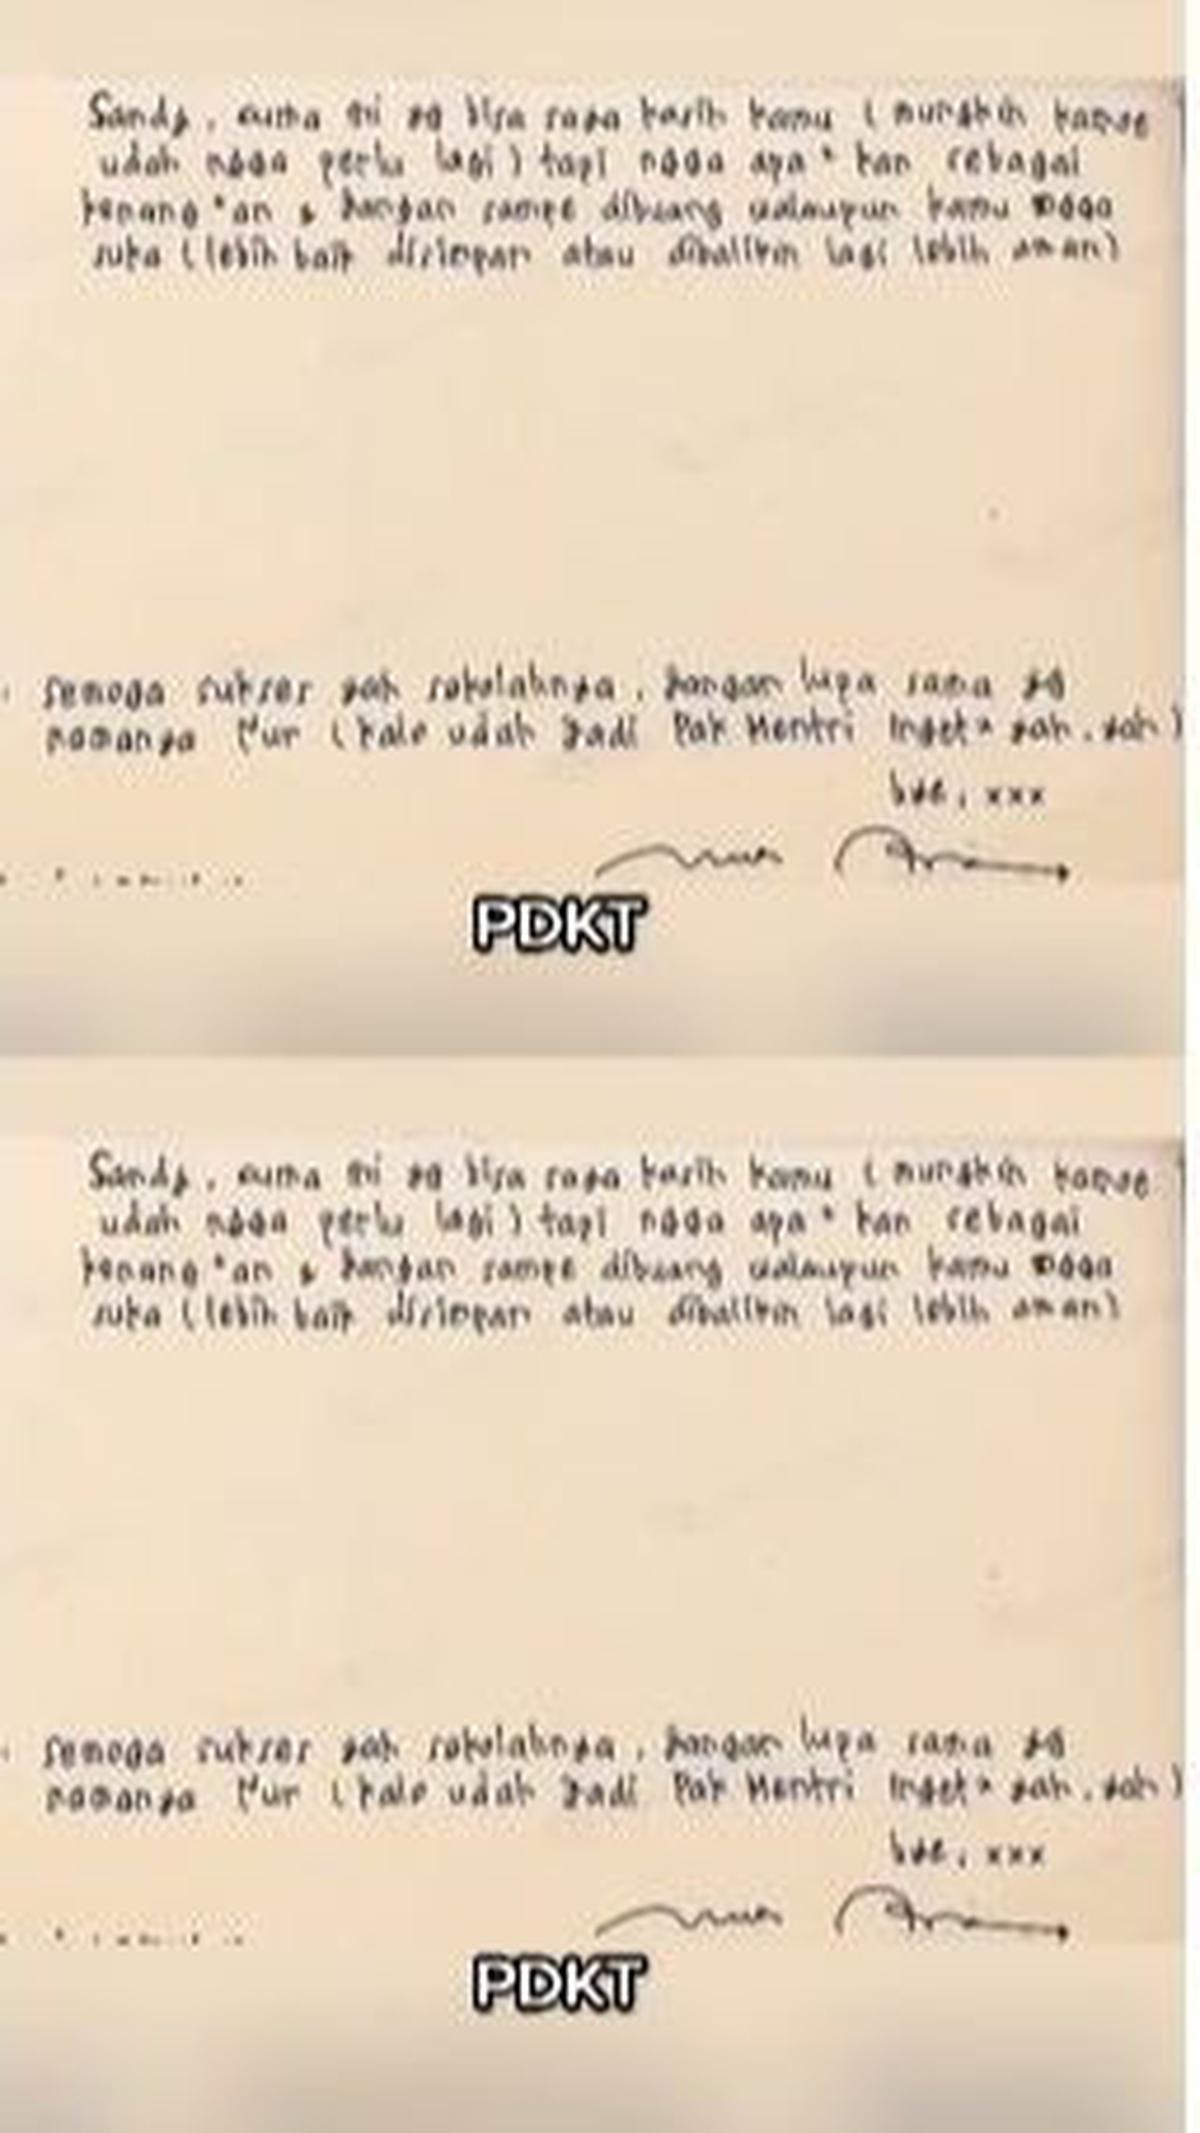 Sandy, cuma ini yg bisa saya kasih kamu (mungkin kamoe
udah ngga perlu lagi) tapi ngga apa² kan sebagai
kenang²an & jangan sampe dibuang walaupun kamu ngga
suka (lebih baik disimpan atau dibalikin lagi lebih aman)
semoga sukses yah sekolahnya, jangan lupa sama yg
namanya Nur (kalo udah jadi Pak Mentri inget² yah. yah)
bye, xxx
Nur
PDKT
Sandy, cuma ini yg bisa saya kasih kamu (mungkin kamoe
udah ngga perlu lagi) tapi ngga apa² kan sebagai
kenang²an & jangan sampe dibuang walaupun kamu ngga
suka (lebih baik disimpan atau dibalikin lagi lebih aman)
semoga sukses yah sekolahnya, jangan lupa sama yg
namanya Nur (kalo udah jadi Pak Mentri inget² yah. yah)
bye, xxx
Nur
PDKT